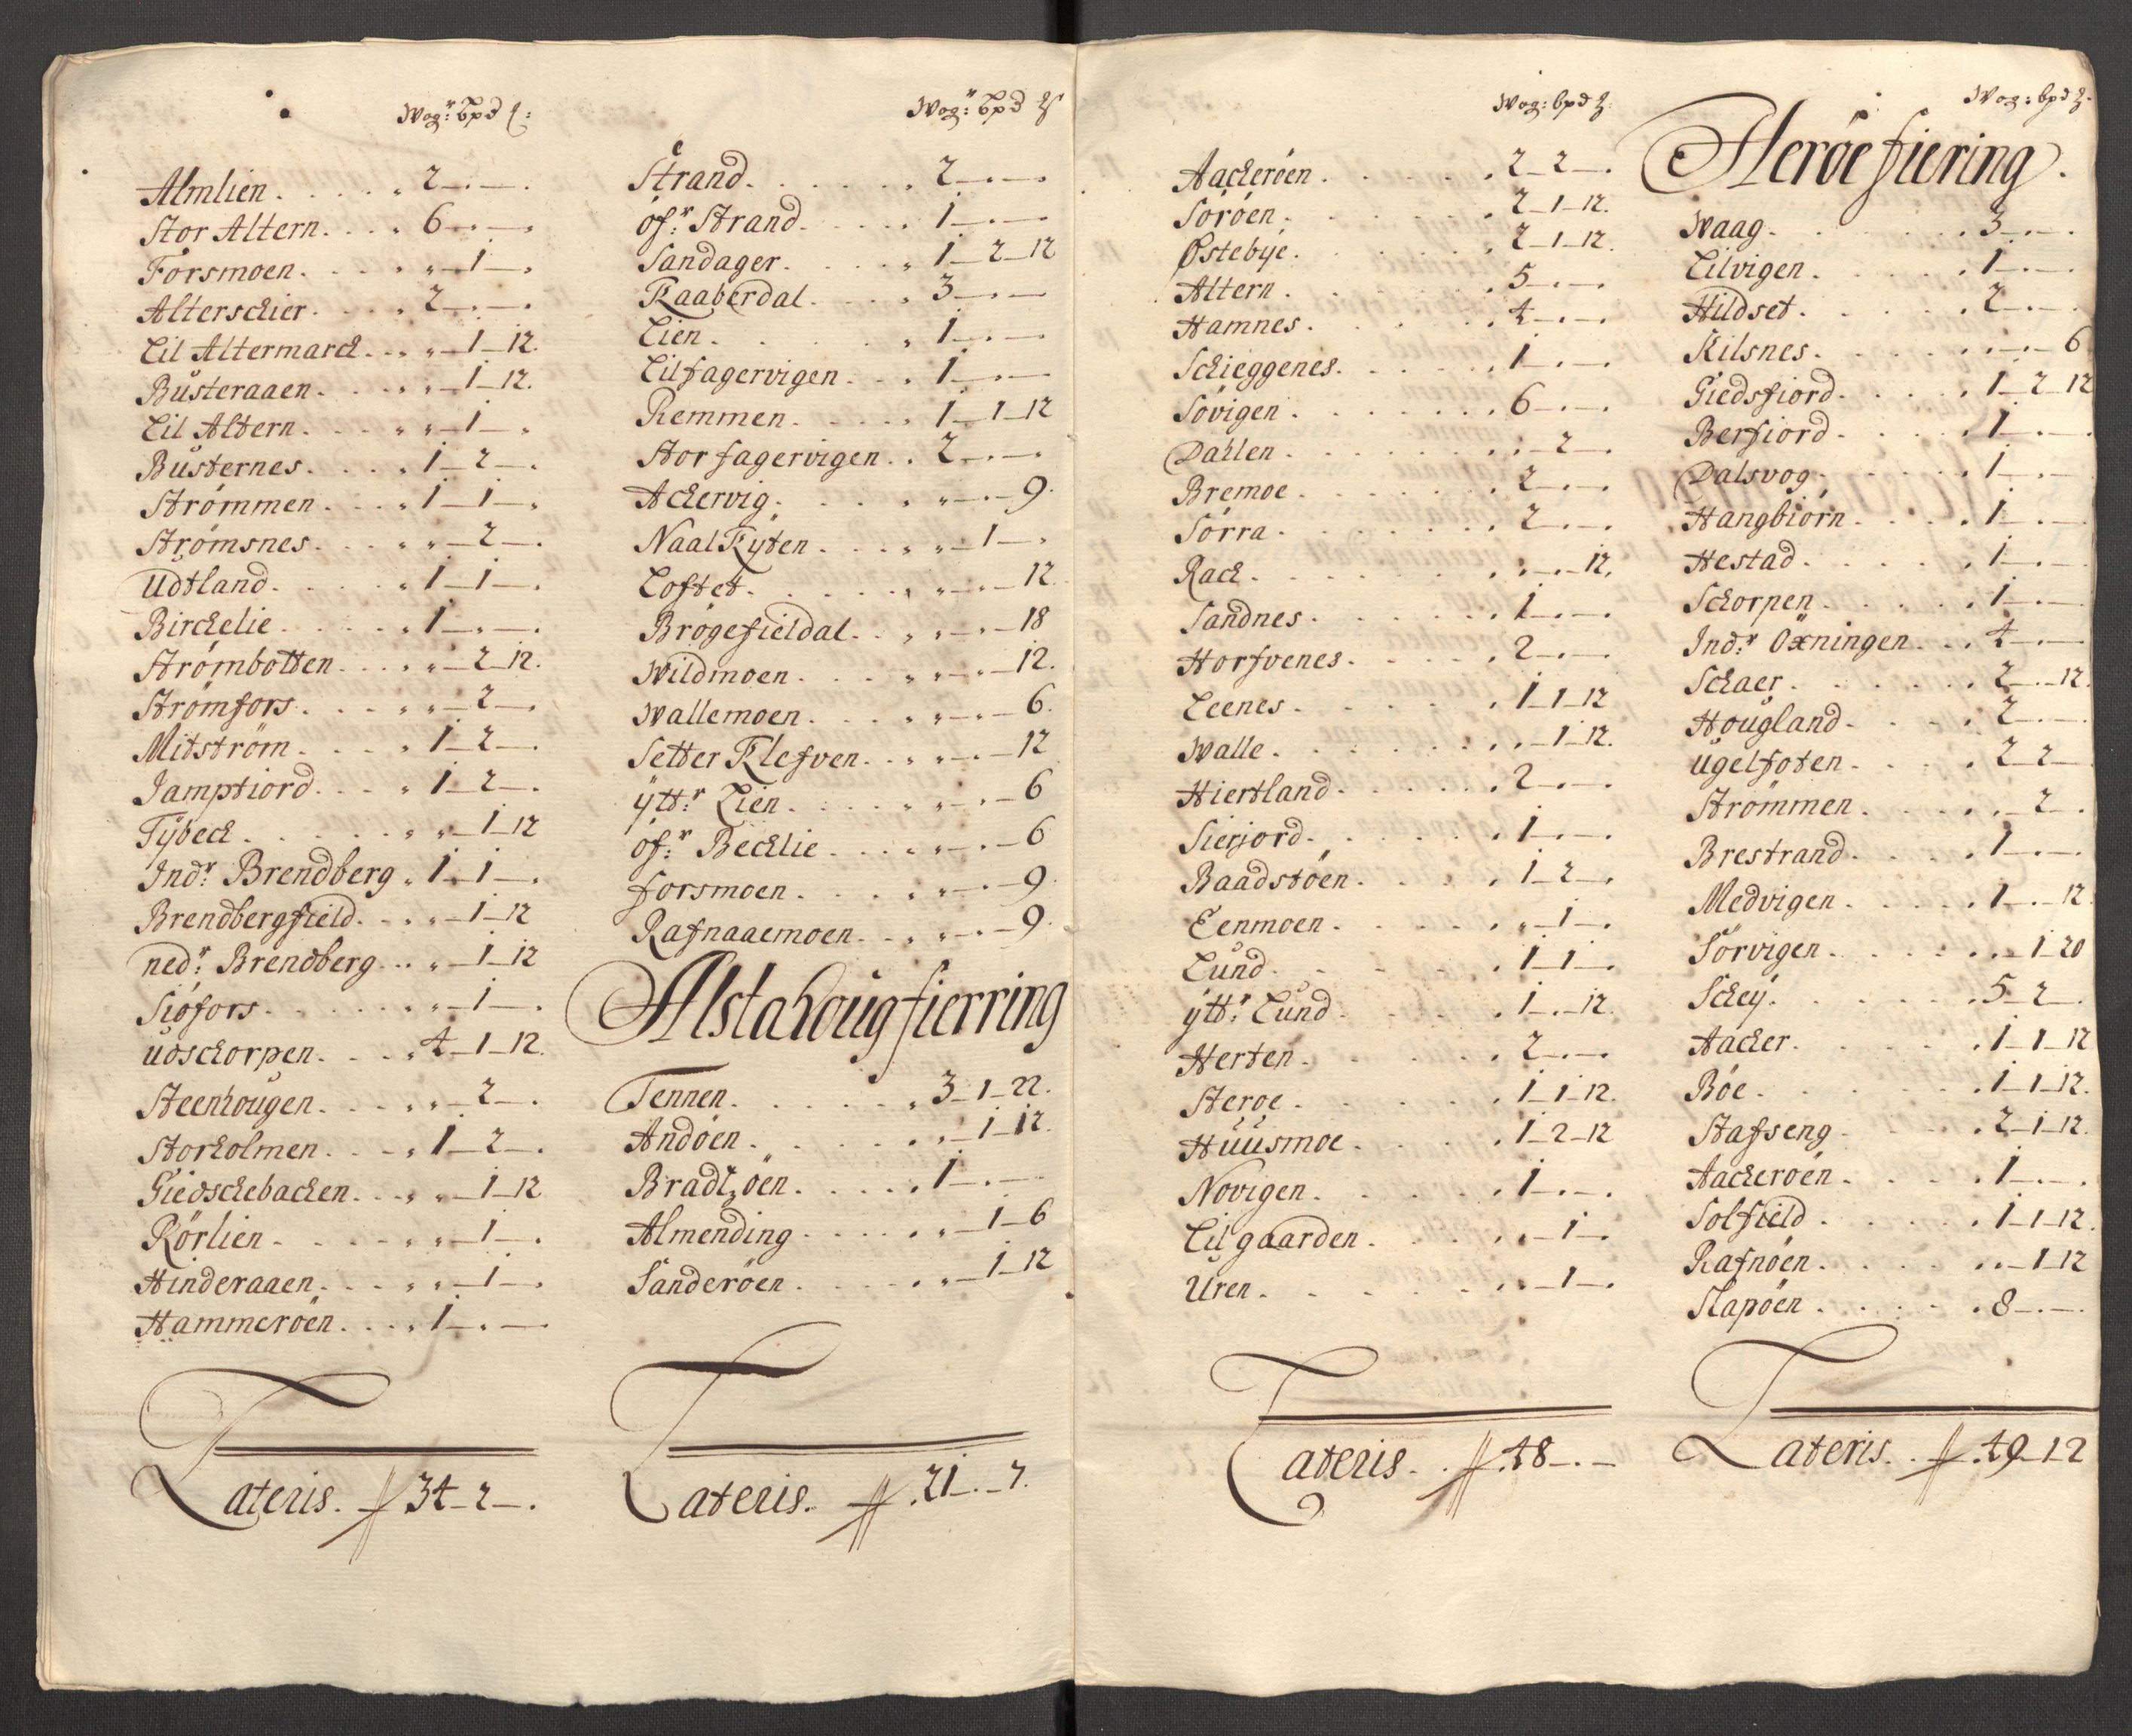 Wog: bpd ℔:
Almlien . . . . . 2 — . — .
Stor Altern . . . . 6 — . — .
Forsmoen . . . . „ — 1 — .
Alterschier . . . . 2 — . — .
Lil Altermarch . . . „ — 1 — 12.
Busteraaen . . . . „ — 1 — 12.
Lil Altern . . . . „ — 1 — .
Busternes . . . . 1 — 2 — .
Strömmen . . . . 1 — 1 — .
Strömsnes . . . . „ — 2 — .
Udtland . . . . . 1 — 1 — .
Birckelie . . . . . 1 — . — .
Strömbotten . . . „ — 2 — 12.
Strömfors . . . . „ — 2 — .
Mitström . . . . 1 — 2 — .
Jamptiord . . . . 1 — 2 — .
Tÿbeck . . . . . „ — 1 — 12
Indr: Brendberg . 1 — 1 — .
Brendbergfield . . . „ — 1 — 12
nedr: Brendberg . . . „ — 1 — 12
Siöfors . . . . . „ — 1 — .
Udschorpen . . . . 4 — 1 — 12.
Steenhougen . . . . „ — 2 — .
Storholmen . . . . 1 — 2 — .
Giedschebacken . . . „ — 1 — 12
Rörlien . . . . . „ — 1 — .
Hinderaaen . . . . „ — 1 — .
Hammeröen . . . . 1 — . — .
Lateris . 34 — 2 — .
Wog: bpd ℔
Strand . . . . . . 2 — . —
öfr: Strand . . . . . 1 — . —
Sandager . . . . . 1 — 2 — 12
Kaaberdal . . . . . 3 — . —
Lien . . . . . . . 1 — . —
Lilfagervigen . . . . 1 — . —
Remmen . . . . . 1 — 1 — 12
Stor fagervigen . . 2 — . — .
Ackervig . . . . . „ — . — 9.
Naal Kÿten . . . . „ — 1 — .
Loftet . . . . . . „ — . — 12.
Brögefieldal . . . . „ — . — 18
Wildmoen . . . . „ — . — 12.
Wallemoen . . . . „ — . — 6.
Setter Klefven . . . „ — . — 12
ÿttr: Lien . . . . . „ — . — 6
öfr: Becklie . . . . „ — . — 6
forsmoen . . . . . „ — . — 9.
Rafnaaemoen . . . „ — . — 9.
Alstahougfierring
Tennen . . . . . . 3 — 1 — 22.
Andöen . . . . . . „ — 1 — 12.
Bradtzöen . . . . . 1 — . —
Almending . . . . . „ — 1 — 6
Sanderöen . . . . . „ — 1 — 12
Lateris . 21 — . — 7.
Wog: bpd ℔:
Aackeröen . . . . . 2 — 2 — .
Söröen . . . . . . 2 — 1 — 12.
Østebÿe . . . . . . 2 — 1 — 12.
Altern . . . . . . 5 — . — .
Hamnes . . . . . . 4 — . — .
Schieggenes . . . . . 1 — . — .
Sövigen . . . . . . 6 — . — .
Dahlen . . . . . . „ — 2 — .
Bremoe . . . . . . 2 — . — .
Sörra . . . . . . 2 — . — .
Rack . . . . . . . „ — . — 12.
Sandnes . . . . . . 1 — . — .
Horfvenes . . . . . 2 — . — .
Leenes . . . . . . 1 — 1 — 12
Walle . . . . . . . „ — 1 — 12.
Hiertland . . . . . . 2 — . — .
Sierjord . . . . . . 1 — . — .
Baadstöen . . . . . 1 — 2 — .
Eenmoen . . . . . . „ — 1 — .
Lund . . . . . . 1 — 1 — .
ÿttr: Lund . . . . . 1 — . — 12.
Herten . . . . . . 2 — . — .
Steroe . . . . . . 1 — 1 — 12.
Huusmoe . . . . . 1 — 2 — 12
Novigen . . . . . . 1 — . — .
Lil gaarden . . . . . „ — 1 — .
Uren . . . . . . „ — 1 — .
Lateris . . 48 — . —
Wog: bpd ℔.
Heröe fiering .
Waag . . . . . . 3 — . — .
Lilvigen . . . . . . 1 — . —
Hildset . . . . . . 2 — . — .
Kilsnes . . . . . . . — . — 6
Giedsfiord . . . . . 1 — 2 — 12
Berfiord . . . . . 1 — . —
Dalsvog . . . . . 1 — . —
Hangbiörn . . . . . 1 — . —
Hestad . . . . . . 1 — . —
Schorpen . . . . . 1 — . —
Indr: Oxningen . . . 4 — . —
Schaer . . . . . . 2 — . — 12.
Hougland . . . . . 2 — . — .
Ugelfoten . . . . . 2 — 2 —
Strömmen . . . . . „ — 2 — .
Brestrand . . . . . 1 — . — .
Medvigen . . . . . 1 — . — 12
Sörvigen . . . . . . „ — 1 — 20
Scheÿ . . . . . . 5 — 2 — .
Aacker . . . . . . 1 — 1 — 12
Böe . . . . . . . 1 — 1 — 12.
Stafseng . . . . . . 2 — 1 — 12.
Aackeroën . . . . . 1 — . — .
Solfield . . . . . . 1 — 1 — 12.
Rafnöen . . . . . . „ — 1 — 12
Slapöen . . . . . . 8 — . — .
Lateris . . 49 — 1 2